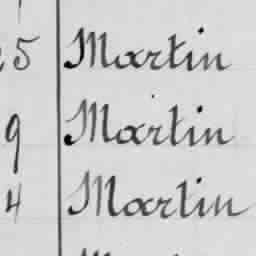 5 Martin
9 Martin
4 Martin